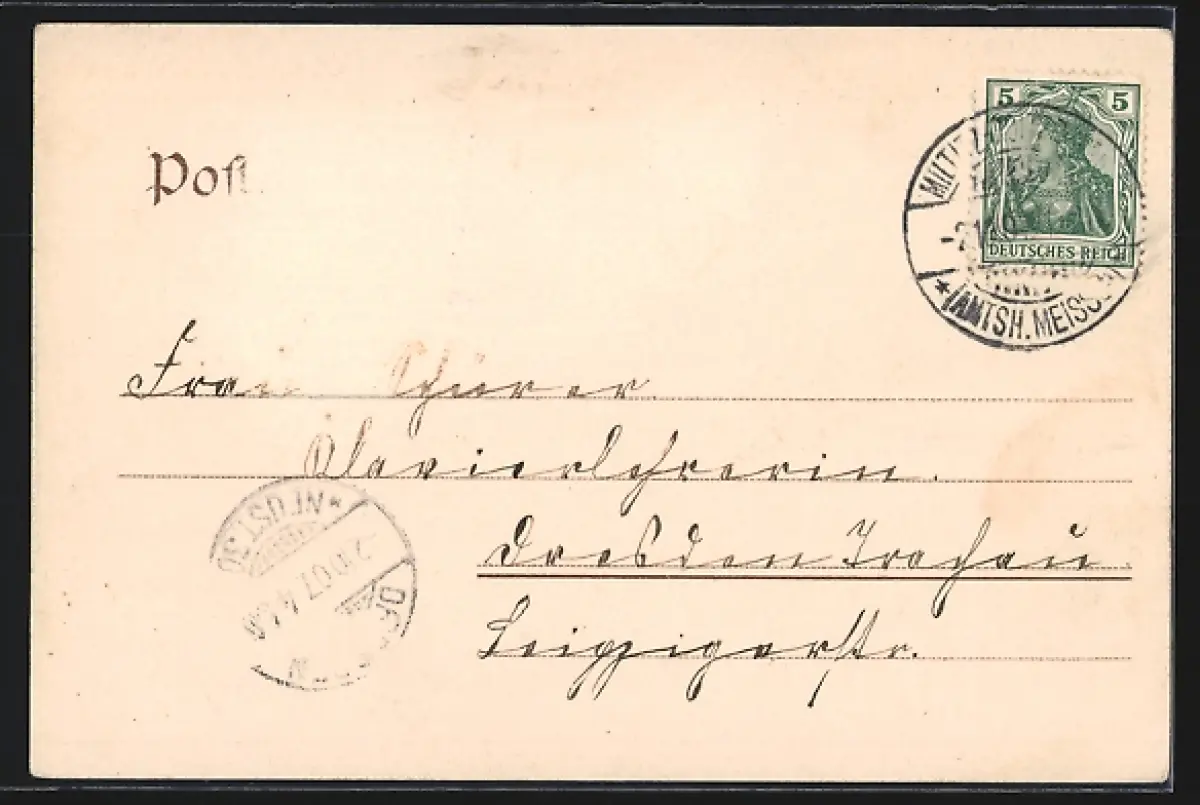 Post
5 5
DEUTSCHES REICH
AMTSH. MEISS
Frau Schürer
Clavierlehrerin.
Dresden Trachau.
Leipzigerstr.
*NEUST. 30
07 4